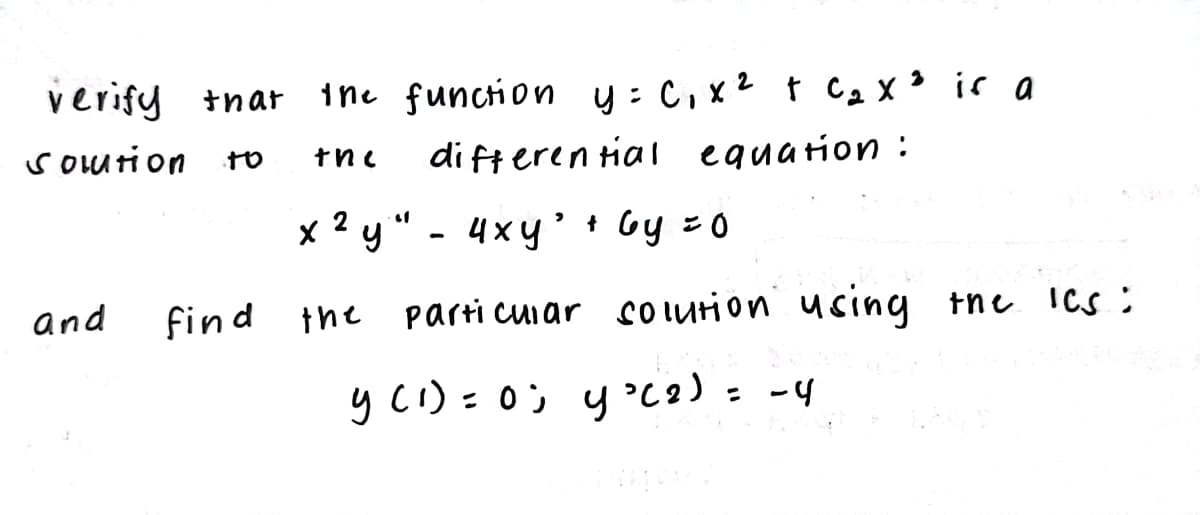 verify that the function y = C₁x² + C₂x³ is a
solution to the differential equation :
x²y" - 4xy' + 6y = 0
and find the particular solution using the ICs :
y(1) = 0; y'(2) = -4